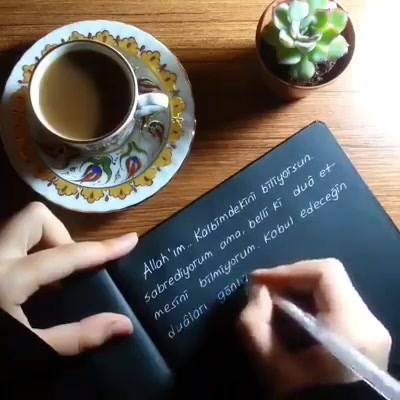 Allah'ım.. Kalbimdekini biliyorsun.
sabrediyorum ama, belli ki duâ et-
mesini bilmiyorum. Kabul edeceğin
duâları